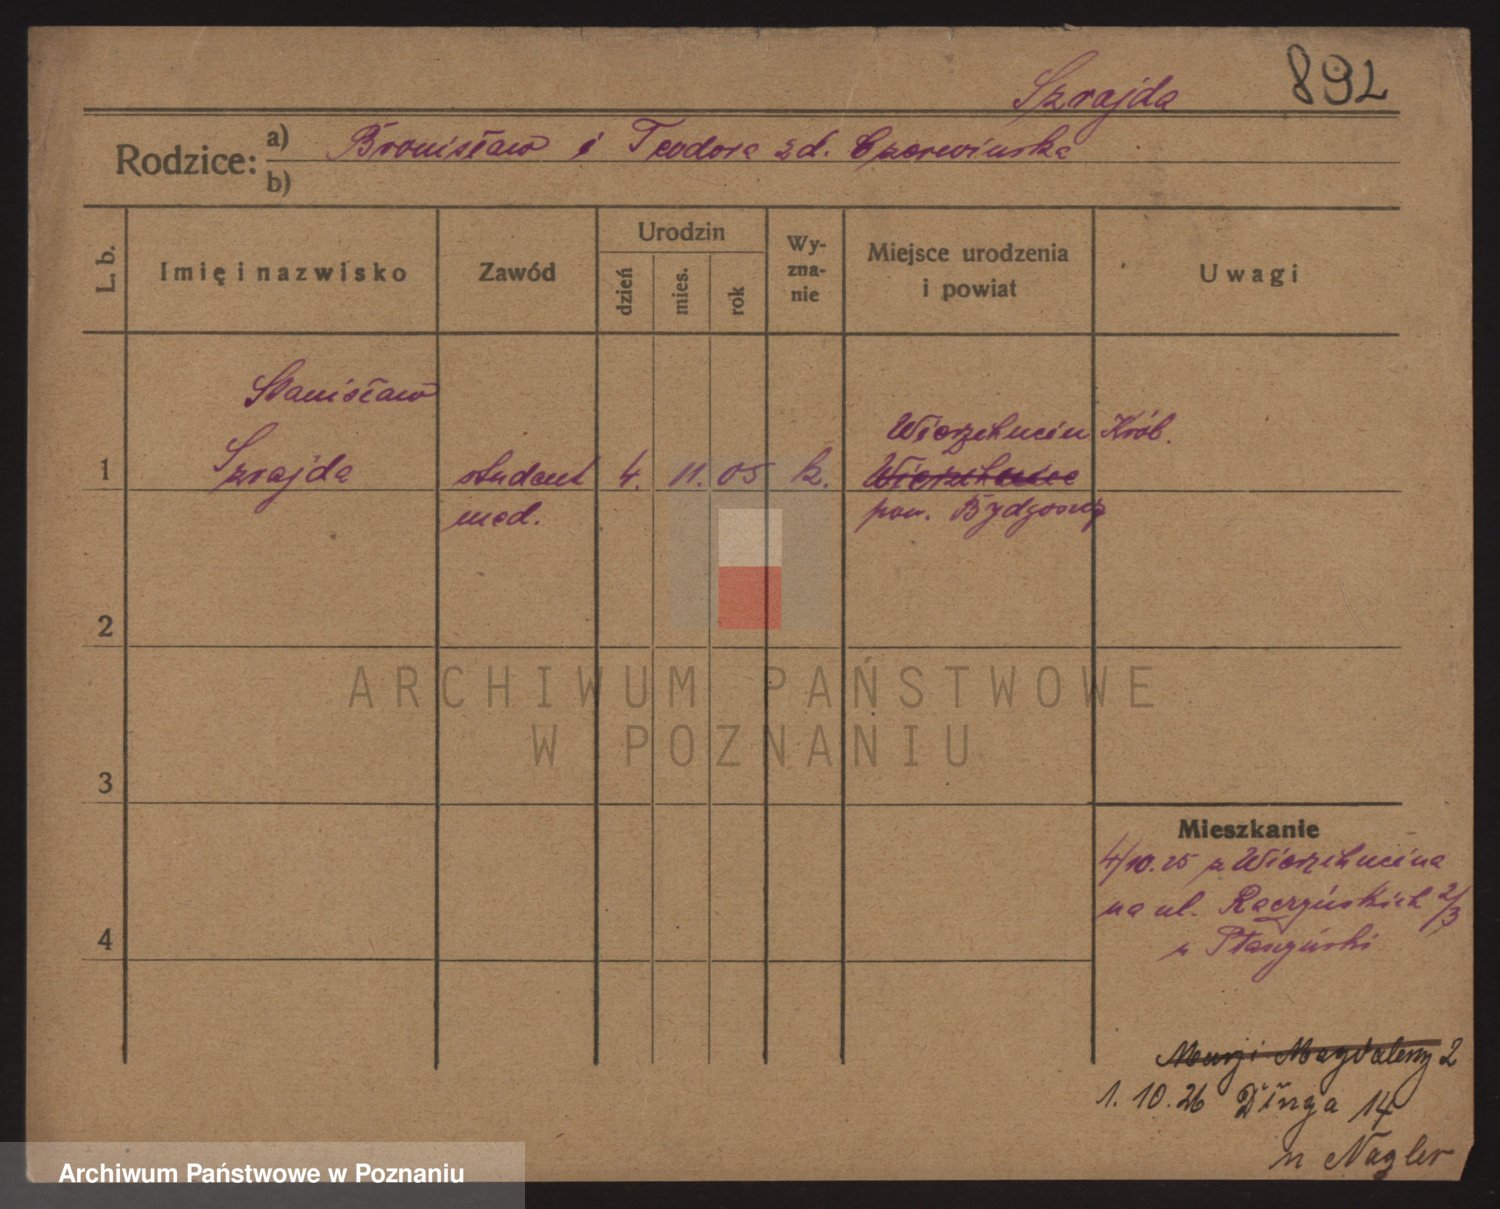 Szrajda 892
Rodzice: a) Bronisław i Teodora zd. Czerwińska
b)
L. b. Imię i nazwisko Zawód Urodzin dzień mies. rok Wy-zna-nie Miejsce urodzenia i powiat Uwagi
Stanisław
Wierzchucin Król.
1 Szrajda student 4. 11. 05 k. Wierzchucice
med. pow. Bydgoszcz
2
ARCHIWUM PAŃSTWOWE
W POZNANIU
3
Mieszkanie
4/10.25 z Wierzchucina
na ul. Raczyńskich 2/3
4
u Ptaszyński
Maryi Magdaleny 2
1. 10. 26 Długa 14
u Nagler
Archiwum Państwowe w Poznaniu